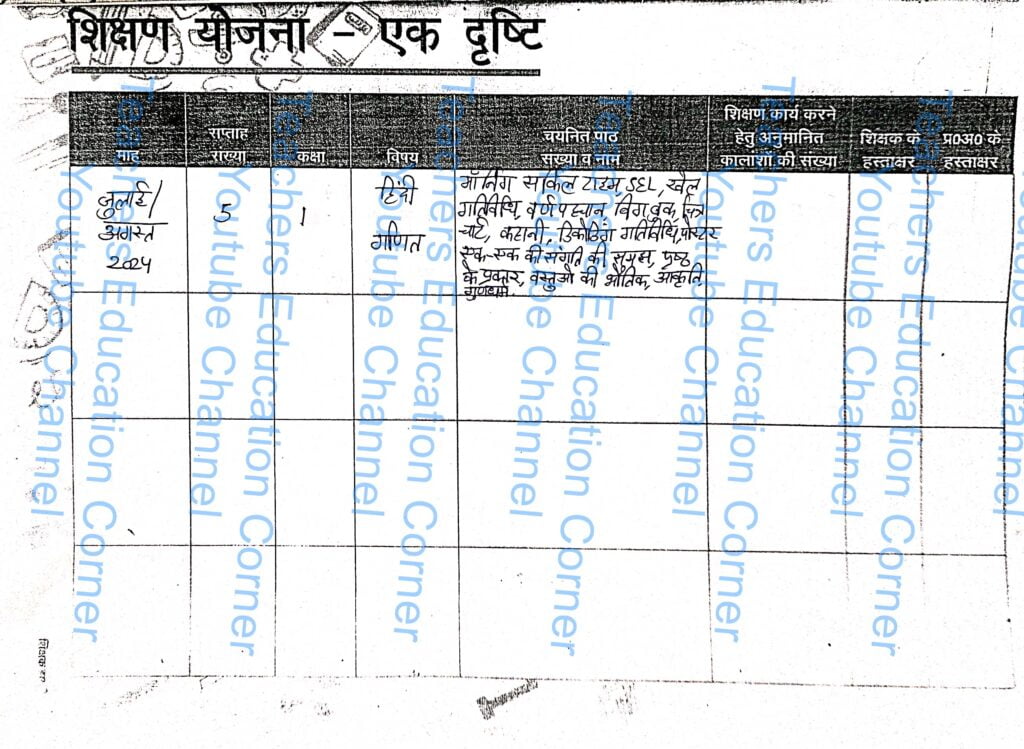 शिक्षण योजना – एक दृष्टि
माह
सप्ताह
संख्या
कक्षा
विषय
चयनित पाठ
संख्या व नाम
शिक्षण कार्य करने
हेतु अनुमानित
कालांशों की संख्या
शिक्षक के
हस्ताक्षर
प्र0अ0 के
हस्ताक्षर
जुलाई/
अगस्त
2024
5
1
हिंदी
गणित
मॉर्निंग सर्किल टाइम, SEL, खेल
गतिविधि, वर्ण पहचान, बिग बुक, चित्र
चार्ट, कहानी, डिकोडिंग गतिविधि, पोस्टर
एक-एक की संगति की समझ, पृष्ठ
के प्रकार, वस्तुओं की भौतिक, आकृति
गुणधर्म.
Teachers Education Corner
Youtube Channel
Teachers Education Corner
Youtube Channel
Teachers Education Corner
Youtube Channel
Teachers Education Corner
Youtube Channel
Teachers Education Corner
Youtube Channel
Teachers Education Corner
Youtube Channel